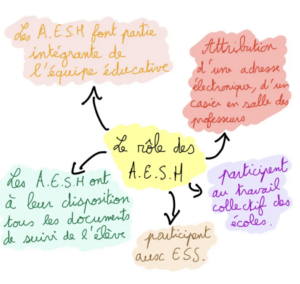 Les A.E.S.H font partie
intégrante de
l'équipe éducative
Attribution
d'une adresse
électronique, d'un
casier en salle des
professeurs
Le rôle des
A.E.S.H
Les A.E.S.H ont
à leur disposition
tous les documents
de suivi de l'élève
participent
au travail
collectif des
écoles.
participent
aux ESS.